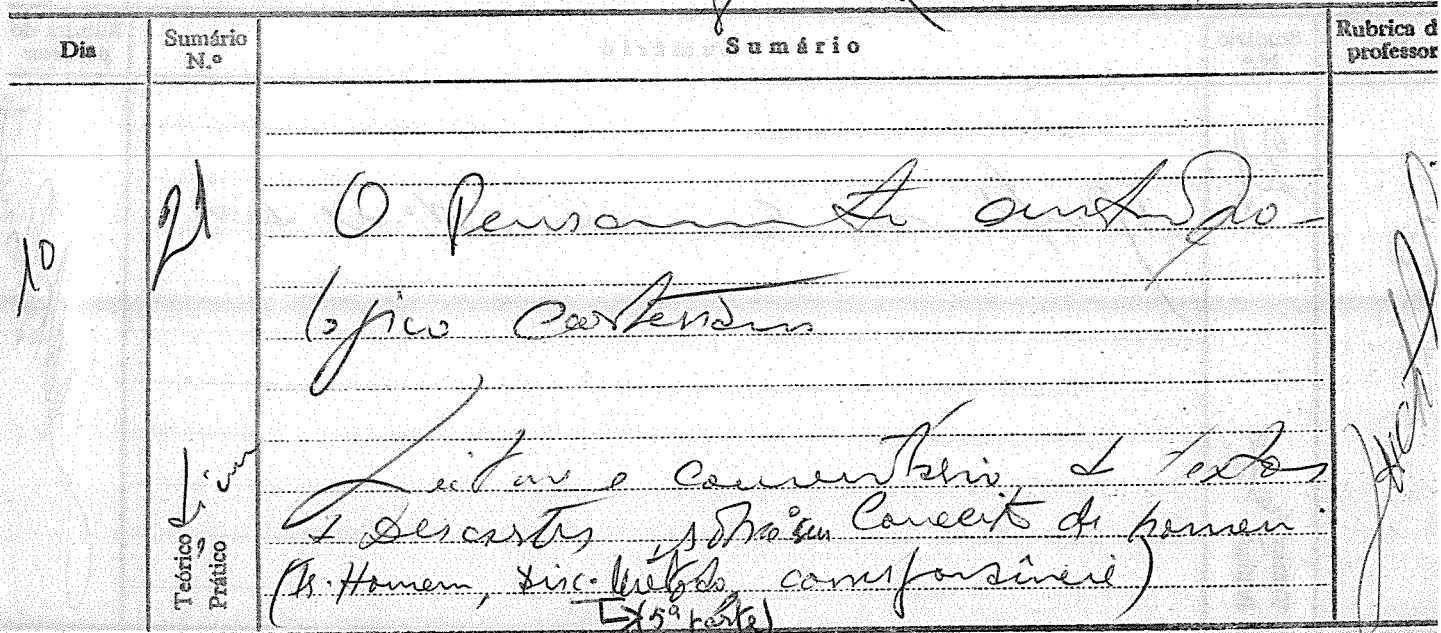 Dia
Sumário N.º
Sumário
Rubrica d
professor
10
21
O Pensamento antropo-
lógico Cartesiano
Leitura e comentário de textos
de Descartes, sobre seu Conceito de homem.
(Tr. Homem, Disc. Método, correspondência)
↳(5ª parte)
Teórico
Prático